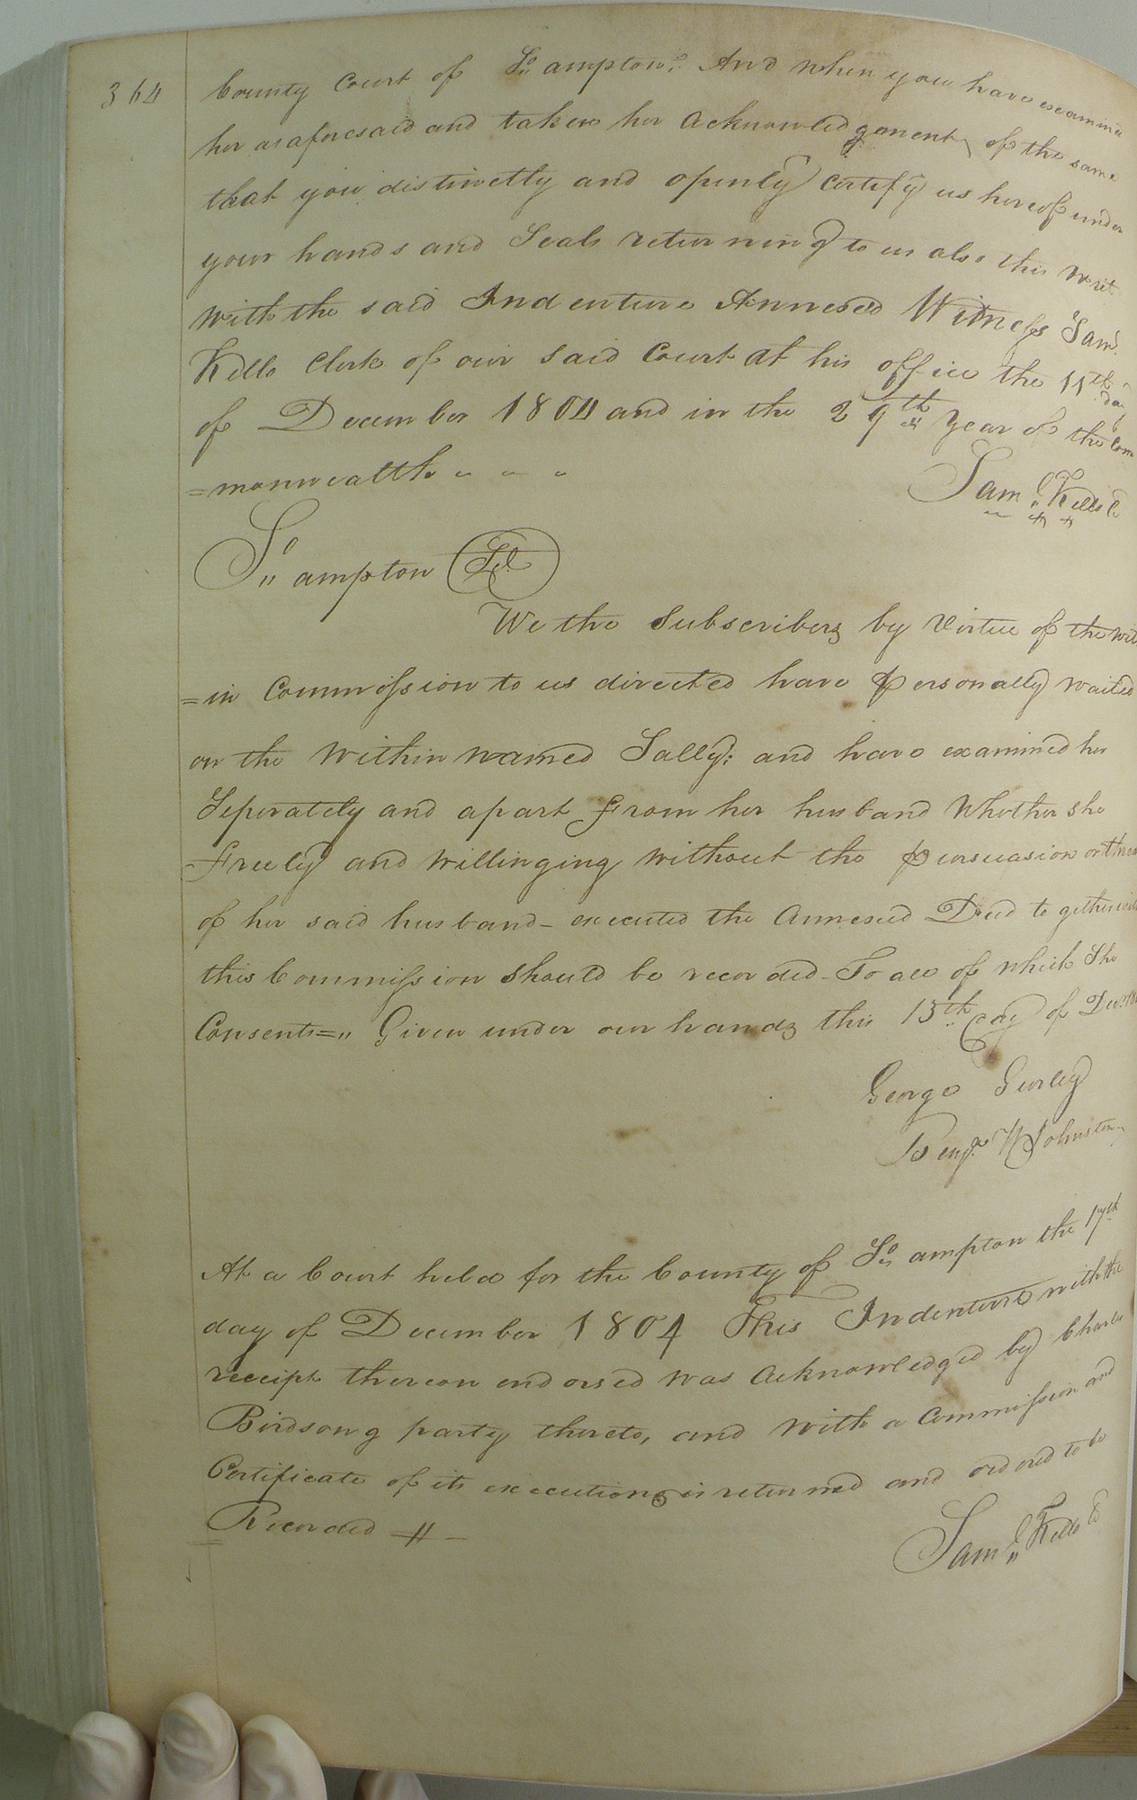 364
County Court of So,, ampton. And when you have examined
her as aforesaid and taken her acknowledgement of the same
that you distinctly and openly certify us hereof under
your hands and Seals returning to us also this writ
with the said Indenture Annexed Witness Saml.
Kello Clerk of our said Court at his office the 11th day
of December 1804 and in the 29th year of the Com
=monwealth " " "
Saml,, Kello C
So,, ampton Sct.
We the Subscribers by Virtue of the with
=in Commission to us directed have personally waited
on the within named Sally; and have examined her
Seperately and apart from her husband Whether she
freely and willinging without the persuasion or threats
of her said husband - executed the Annexed Deed together with
this Commission should be recorded - To all of which She
Consents =,, Given under our hands this 15th day of Decr.
George Gurley
Benja. W Johnston
At a Court held for the County of So,, ampton the 17th
day of December 1804 This Indenture with the
receipt thereon endorsed was acknowledged by Charles
Birdsong party thereto, and with a Commission and
Certificate of its execution is returned and ordered to be
Recorded -//-
Saml,, Kello C